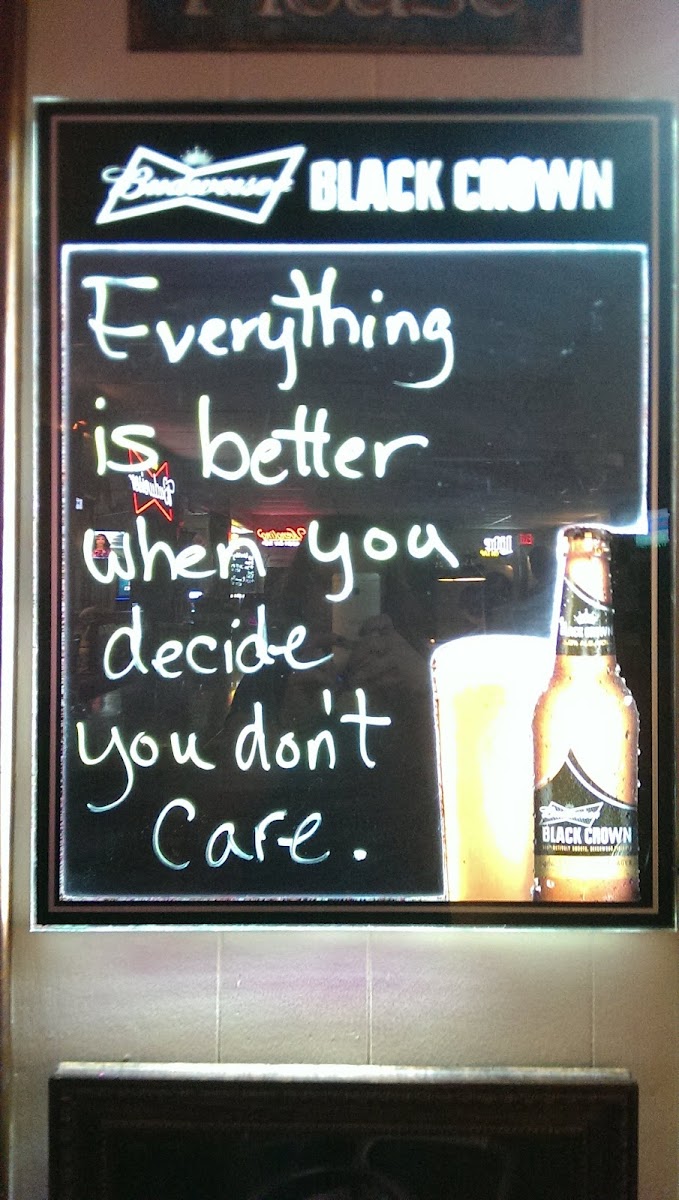 House
Budweiser BLACK CROWN
Everything
is better
when you
decide
you don't
care.
BLACK CROWN
Budweiser
BLACK CROWN